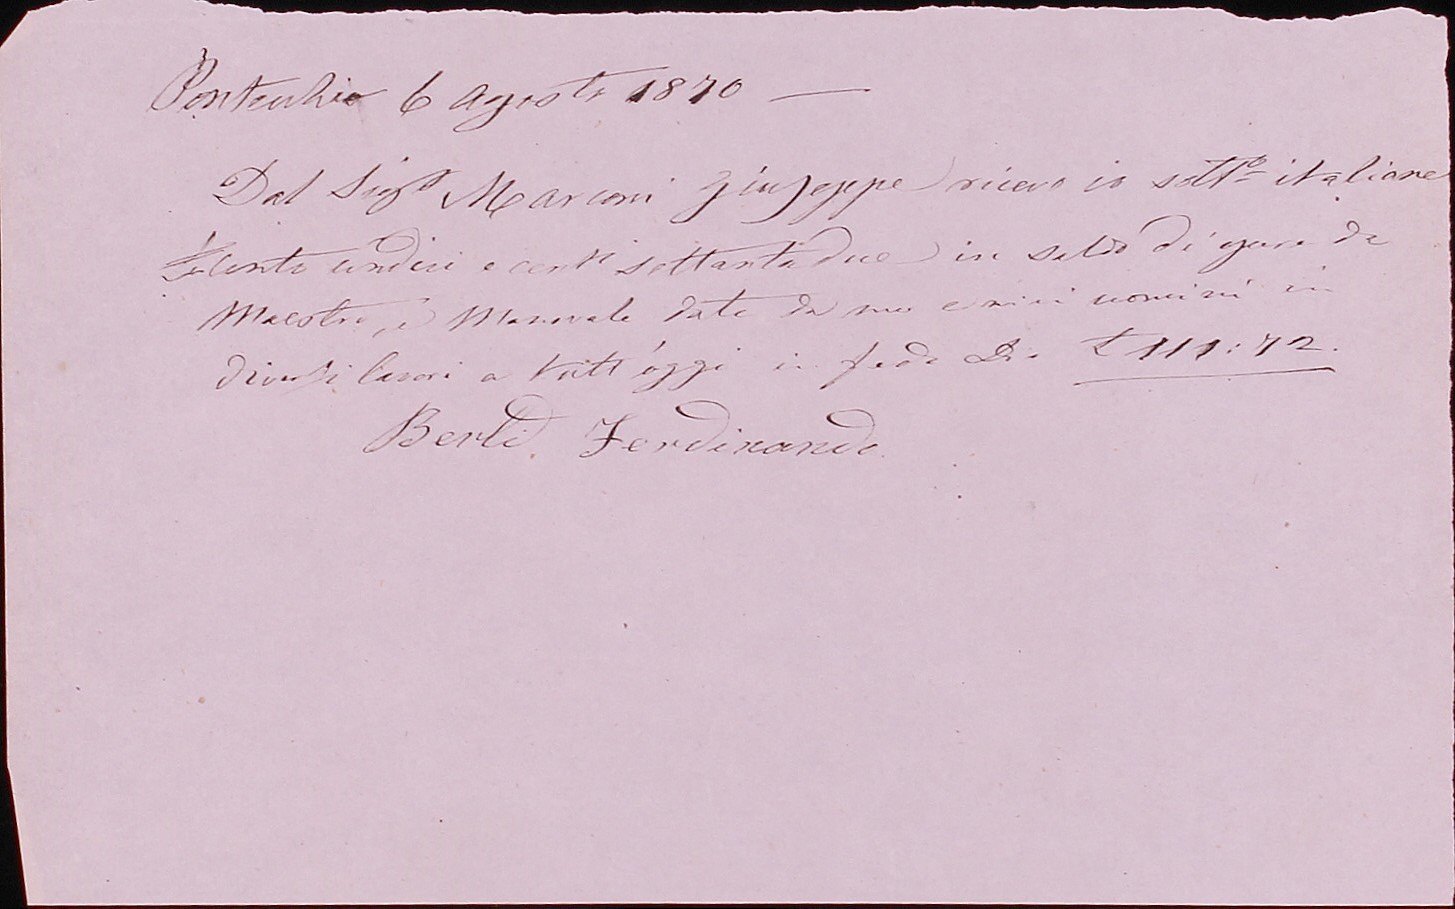 Pontecchio 6 Agosto 1870
Dal Sigr Marconi Giuseppe ricevo io sotto italiane
£ Cento undici e centi settanta due in saldo di opere da
Maestro, e Manuale date da me e miei uomini in
diversi lavori a tutt'oggi in fede Dio £ 111:72.
Berti Ferdinando